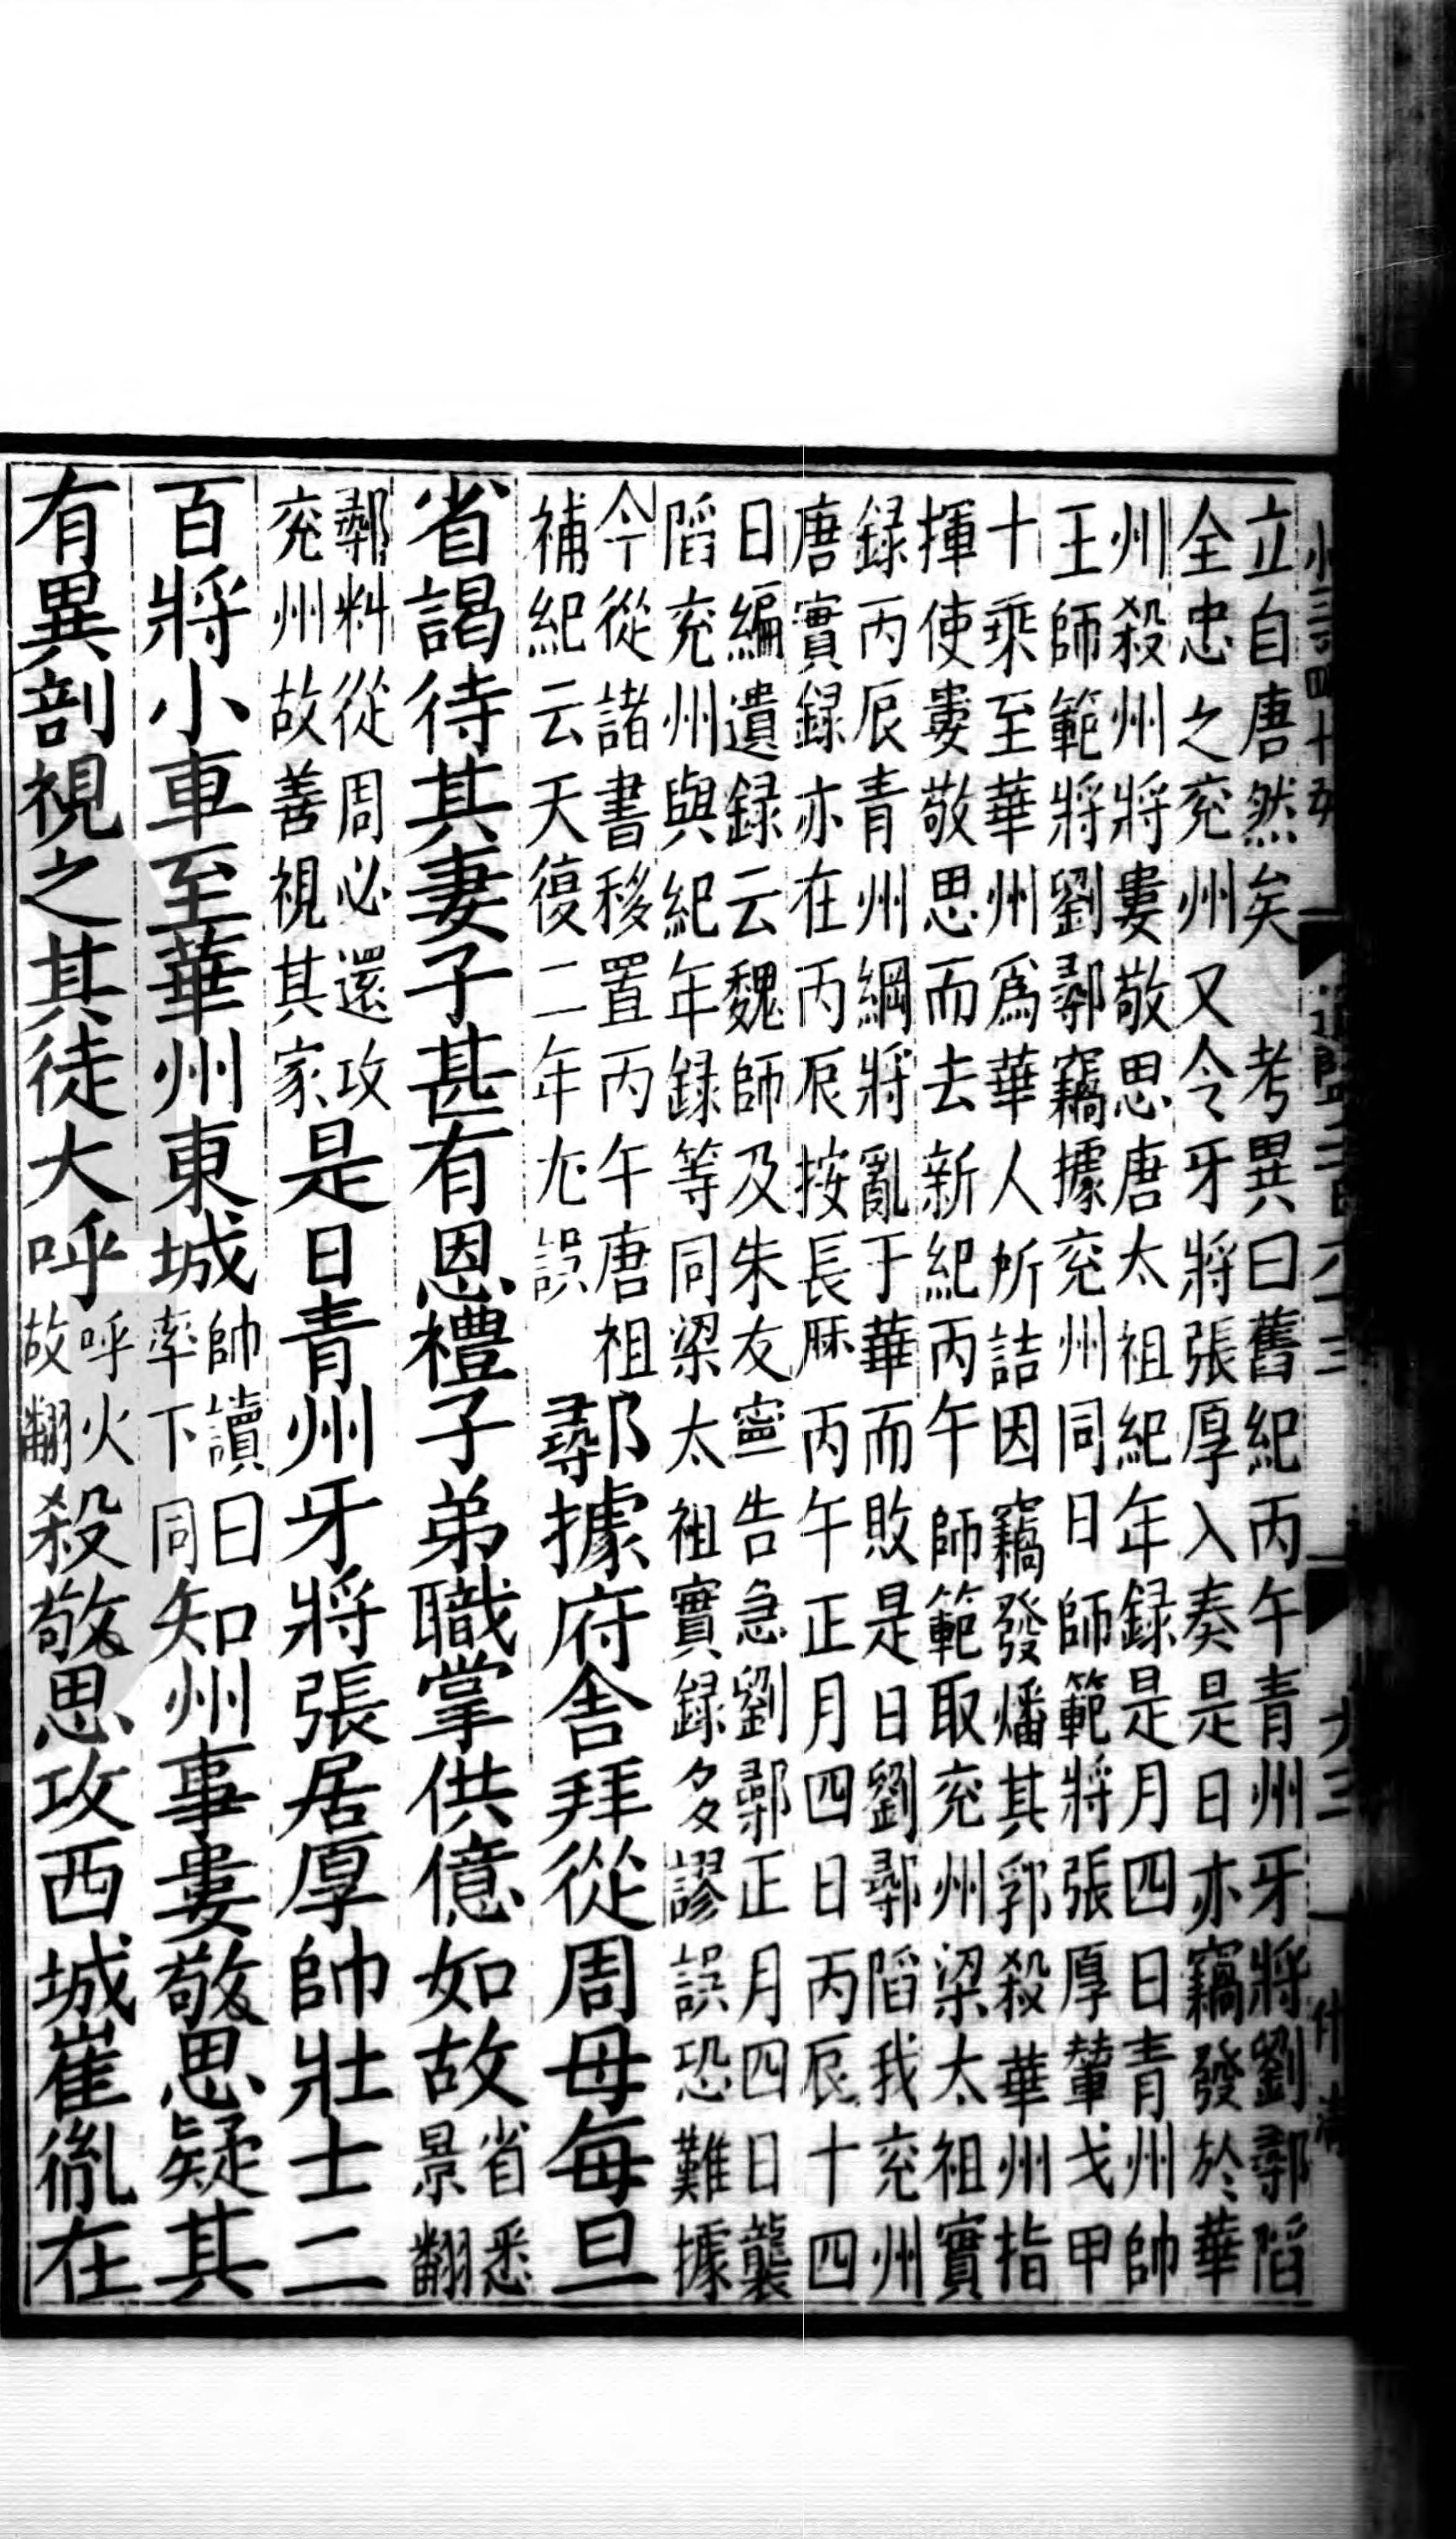 通鑑二百六十三
立自唐然矣　考異曰舊紀丙午青州牙將劉鄩陷
全忠之兖州又令牙將張厚入奏是日亦竊發於華
州殺州將婁敬思唐太祖紀年録是月四日青州帥
王師範將劉鄩竊據兖州同日師範將張厚輦戈甲
十乘至華州爲華人所詰因竊發燔其郛殺華州指
揮使婁敬思而去新紀丙午師範取兖州梁太祖實
録丙辰青州綱將亂于華而敗是日劉鄩陷我兖州
唐實録亦在丙辰按長厤丙午正月四日丙辰十四
日編遺録云魏師及朱友寧告急劉鄩正月四日襲
陷兖州與紀年録等同梁太祖實録多謬誤恐難據
今從諸書移置丙午唐祖
補紀云天復二年尤誤
鄩據府舍拜從周母每旦
省謁待其妻子甚有恩禮子弟職掌供億如故省悉景翻
鄩料從周必還攻兖州故善視其家是日青州牙將張居厚帥壯士二
百將小車至華州東城帥讀曰率下同知州事婁敬思疑其
有異剖視之其徒大呼呼火故翻殺敬思攻西城崔胤在